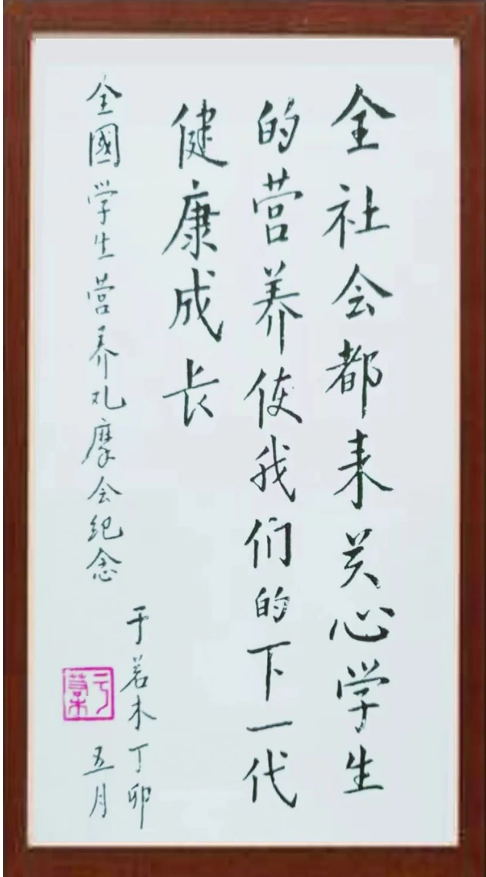 全社会都来关心学生
的营养使我们的下一代
健康成长
全國学生营养观摩会纪念
于若木丁卯
五月